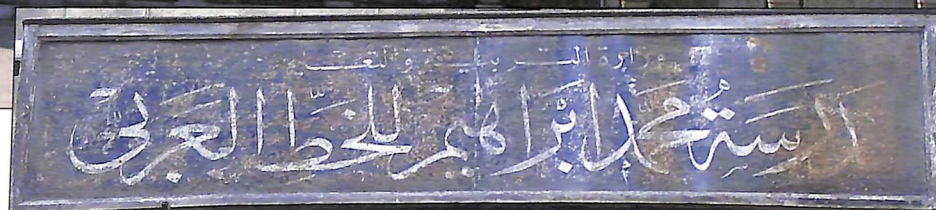 وزارة التربية والتعليم
مدرسة محمد ابراهيم للخط العربى